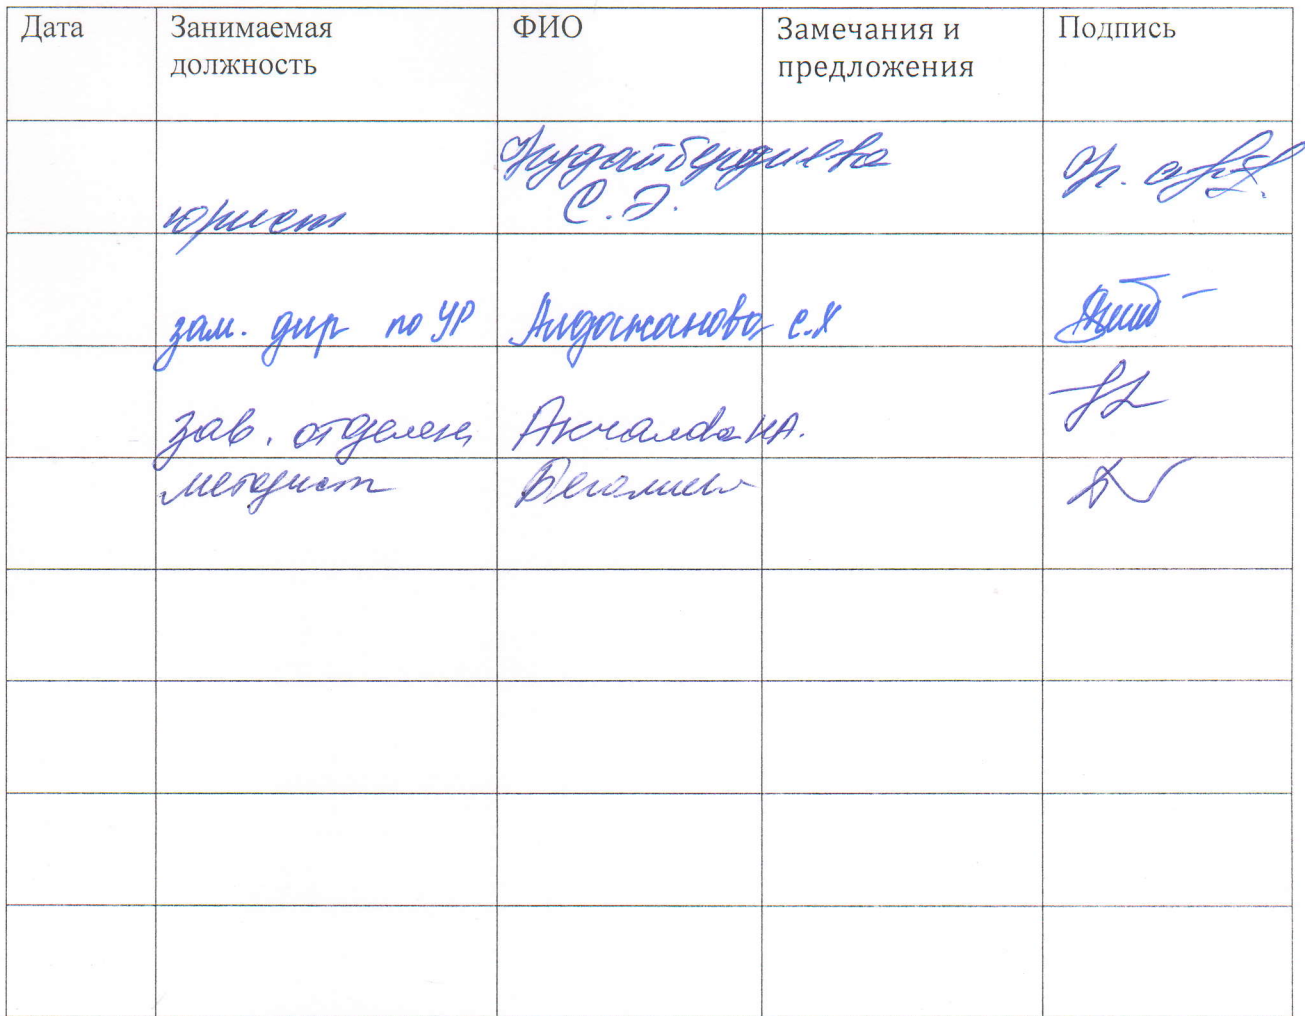 Дата Занимаемая должность ФИО Замечания и предложения Подпись
юрист Кудайбердиева С.Э.
зам. дир по УР Андажанова С.Х
зав. отделен
методист